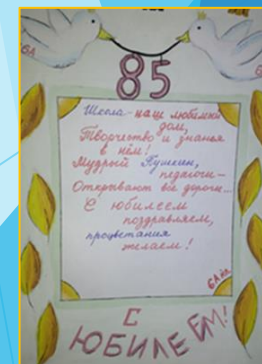 6А
85
Школа - наш любимый
дом,
Творчество и знанья
в нём!
Мудрый Пушкин,
педагоги -
Открывают все дороги -
С юбилеем
поздравляем,
процветания
желаем!
6А кл
С
ЮБИЛЕЕМ!